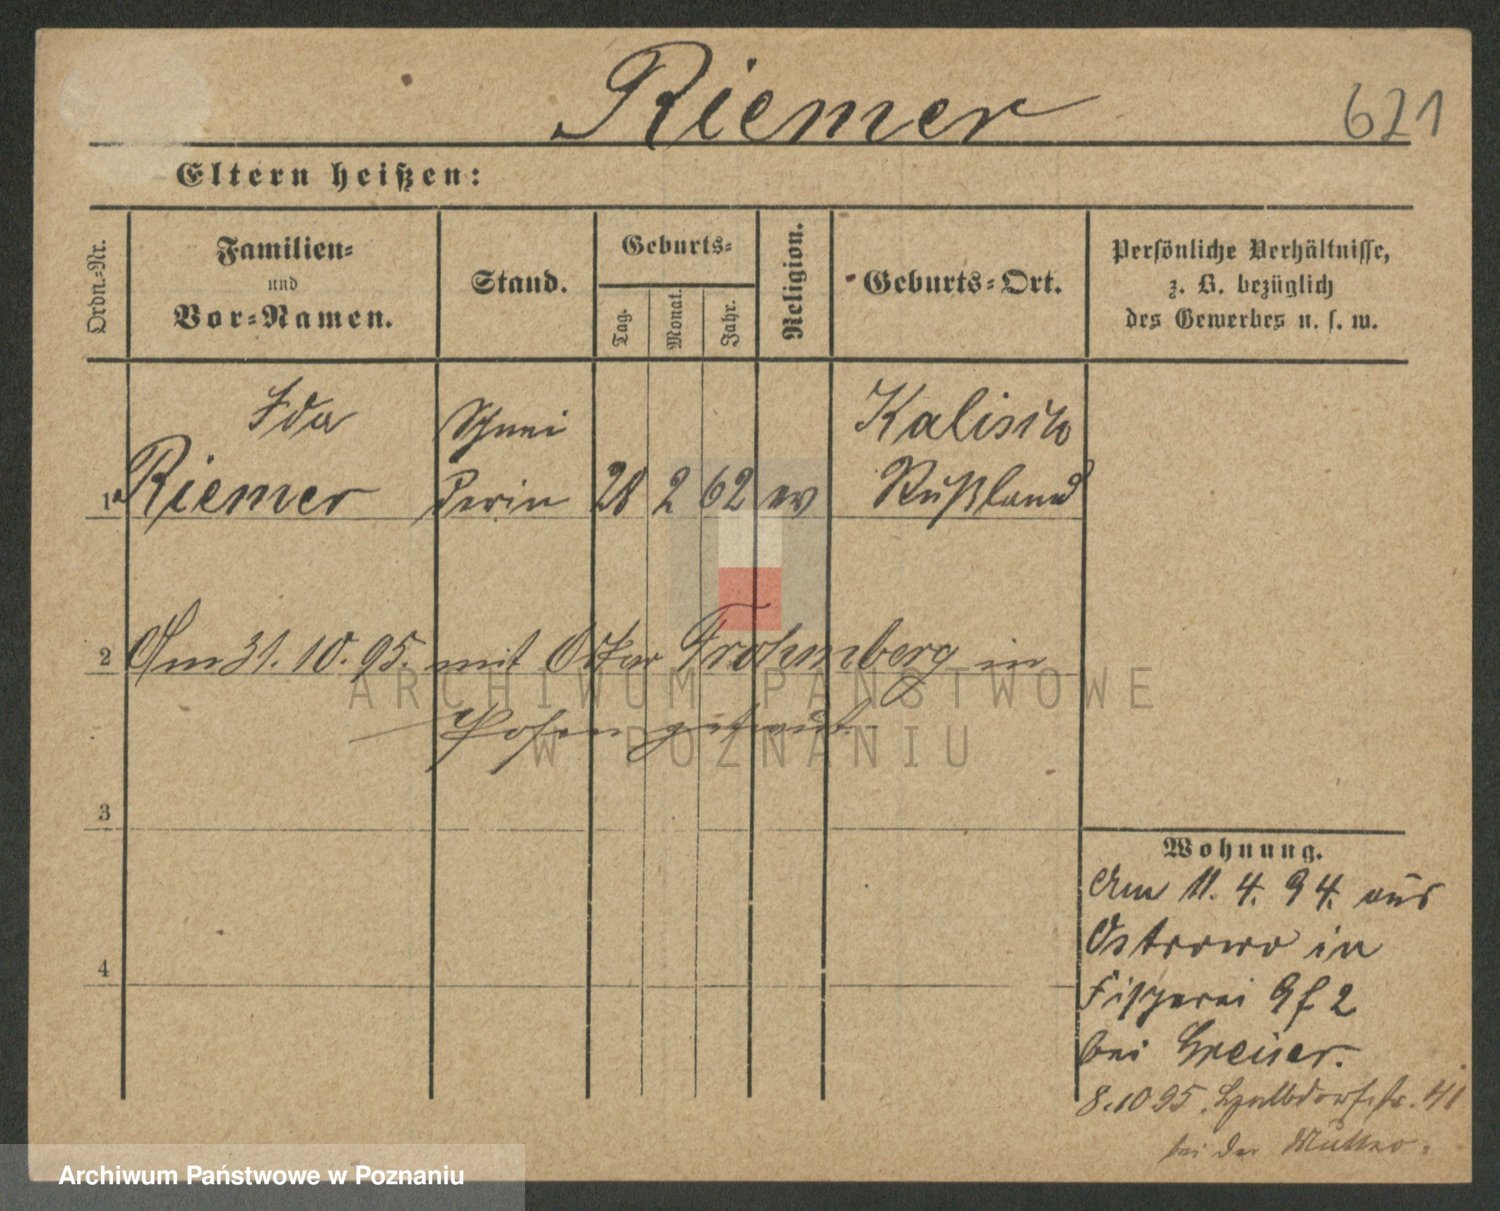 Riemer
621
Eltern heißen:
Ordn.-Nr.
Familien-
und
Vor-Namen.
Stand.
Geburts-
Tag.
Monat.
Jahr.
Religion.
Geburts-Ort.
Persönliche Verhältnisse,
z. B. bezüglich
des Gewerbes u. s. w.
Ida
Schnei
Kalisch
1 Riemer
derin
28 2 62 ev
Rußland
2 Am 31. 10. 95. mit Oskar Frohmberg in
Posen getraut.
ARCHIWUM PAŃSTWOWE
W POZNANIU
3
4
Wohnung.
Am 11. 4. 94. aus
Ostrowo in
Fischerei 9 f 2
bei
8.10 95.
41
bei der Mutter.
Archiwum Państwowe w Poznaniu